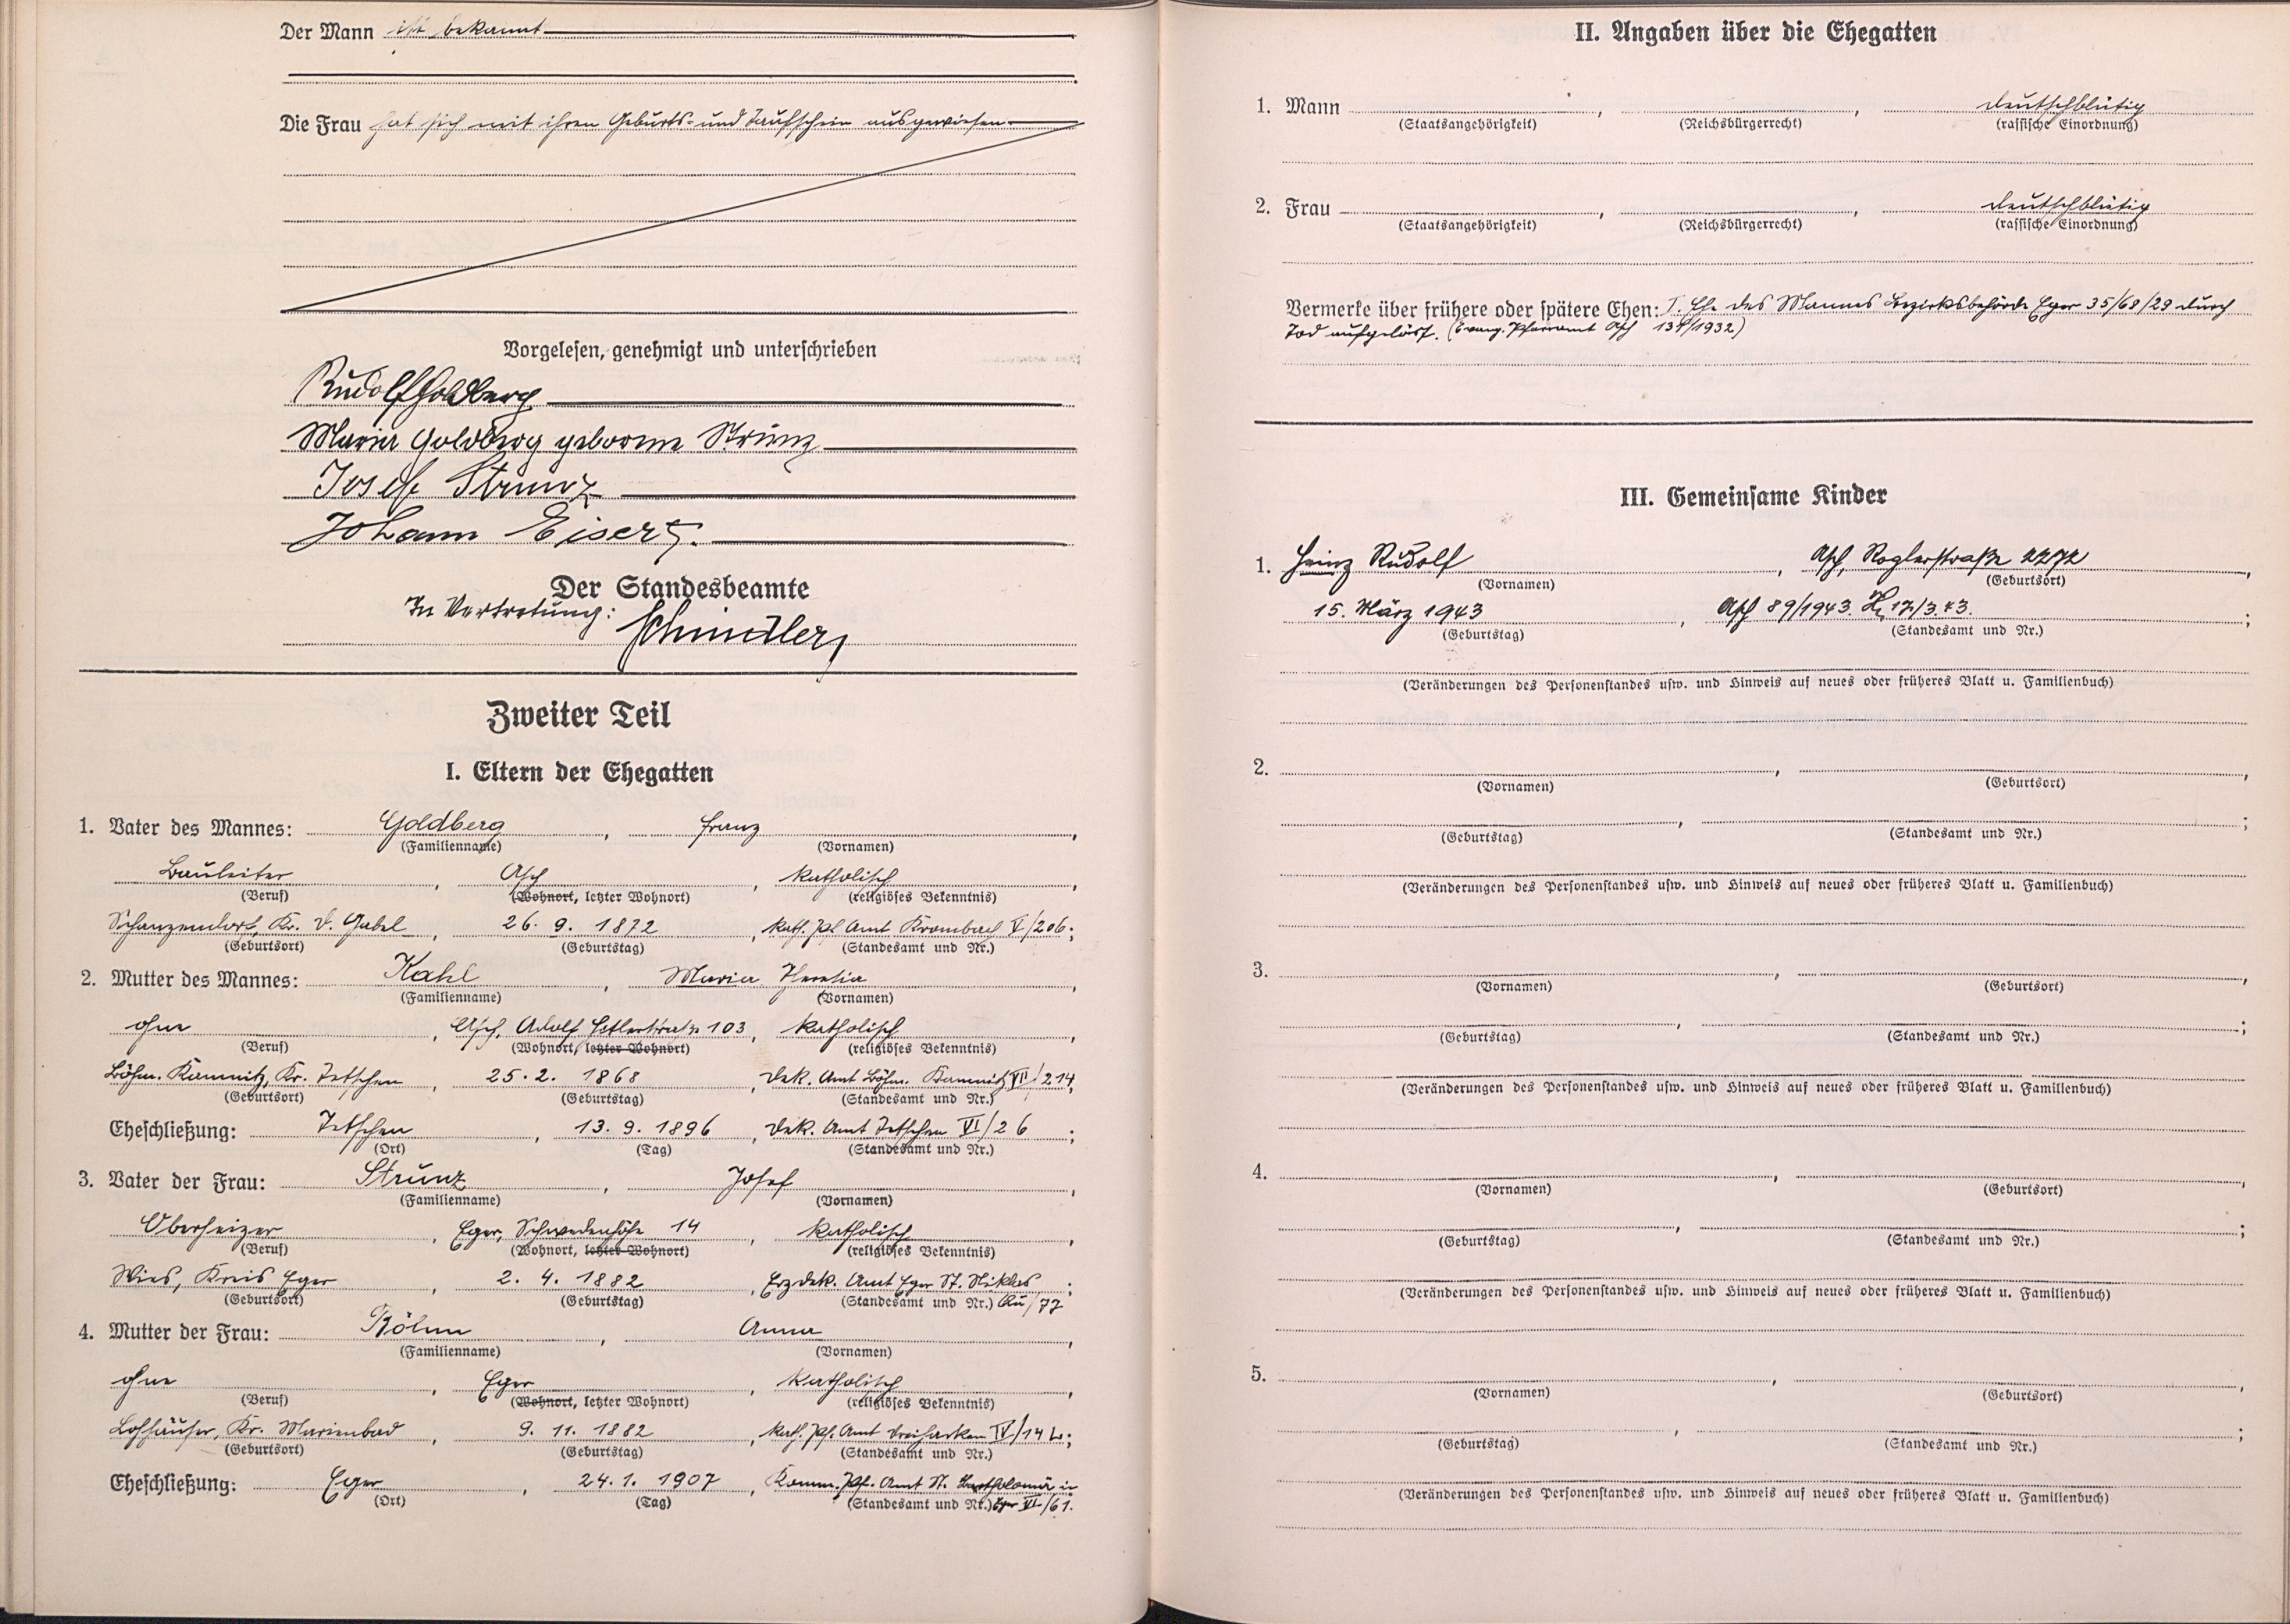 Der Mann ist bekannt
Die Frau hat sich mit ihren Geburts- und Taufschein ausgewiesen
Vorgelesen, genehmigt und unterschrieben
Rudolf Goldberg
Maria Goldberg geborene Strunz
Josef Strunz
Johann Eisert
Der Standesbeamte
In Vertretung: Schindler
Zweiter Teil
I. Eltern der Ehegatten
1. Vater des Mannes: Goldberg, Franz,
(Familienname) (Vornamen)
Bauleiter, Asch, katholisch,
(Beruf) (Wohnort, letzter Wohnort) (religiöses Bekenntnis)
Schanzendorf, Kr. D. Gabel, 26. 9. 1872, kath. Pf. Amt Krombach V/206;
(Geburtsort) (Geburtstag) (Standesamt und Nr.)
2. Mutter des Mannes: Kahl, Maria Theresia,
(Familienname) (Vornamen)
ohne, Asch, Adolf Hitlerstraße 103, katholisch,
(Beruf) (Wohnort, letzter Wohnort) (religiöses Bekenntnis)
Böhm. Kamnitz, Kr. Tetschen, 25. 2. 1868, Dek. Amt Böhm. Kamnitz VII/214,
(Geburtsort) (Geburtstag) (Standesamt und Nr.)
Eheschließung: Tetschen, 13. 9. 1896, Dek. Amt Tetschen VI/26;
(Ort) (Tag) (Standesamt und Nr.)
3. Vater der Frau: Strunz, Josef,
(Familienname) (Vornamen)
Oberheizer, Eger, Schwedenhöhe 14, katholisch,
(Beruf) (Wohnort, letzter Wohnort) (religiöses Bekenntnis)
Wies, Kreis Eger, 2. 4. 1882, Erzdek. Amt Eger St. Niklas;
(Geburtsort) (Geburtstag) (Standesamt und Nr.) Au/77
4. Mutter der Frau: Böhm, Anna,
(Familienname) (Vornamen)
ohne, Eger, katholisch,
(Beruf) (Wohnort, letzter Wohnort) (religiöses Bekenntnis)
Lohhäuser, Kr. Marienbad, 9. 11. 1882, kath. Pf. Amt Dreihacken IV/14 L;
(Geburtsort) (Geburtstag) (Standesamt und Nr.)
Eheschließung: Eger, 24. 1. 1907, Komm. Pf. Amt St. Bartholomä in
(Ort) (Tag) (Standesamt und Nr.) Eger VI/61.
II. Angaben über die Ehegatten
1. Mann , , deutschblütig
(Staatsangehörigkeit) (Reichsbürgerrecht) (rassische Einordnung)
2. Frau , , deutschblütig
(Staatsangehörigkeit) (Reichsbürgerrecht) (rassische Einordnung)
Vermerke über frühere oder spätere Ehen: I. Ehe des Mannes Bezirksbehörde Eger 35/68/29 durch
Tod aufgelöst. (Evang. Pfarramt Asch 134/1932)
III. Gemeinsame Kinder
1. Heinz Rudolf, Asch, Roglerstraße 2272,
(Vornamen) (Geburtsort)
15. März 1943, Asch 89/1943. 17/3.43.;
(Geburtstag) (Standesamt und Nr.)
(Veränderungen des Personenstandes usw. und Hinweis auf neues oder früheres Blatt u. Familienbuch)
2. , ,
(Vornamen) (Geburtsort)
, ;
(Geburtstag) (Standesamt und Nr.)
(Veränderungen des Personenstandes usw. und Hinweis auf neues oder früheres Blatt u. Familienbuch)
3. , ,
(Vornamen) (Geburtsort)
, ;
(Geburtstag) (Standesamt und Nr.)
(Veränderungen des Personenstandes usw. und Hinweis auf neues oder früheres Blatt u. Familienbuch)
4. , ,
(Vornamen) (Geburtsort)
, ;
(Geburtstag) (Standesamt und Nr.)
(Veränderungen des Personenstandes usw. und Hinweis auf neues oder früheres Blatt u. Familienbuch)
5. , ,
(Vornamen) (Geburtsort)
, ;
(Geburtstag) (Standesamt und Nr.)
(Veränderungen des Personenstandes usw. und Hinweis auf neues oder früheres Blatt u. Familienbuch)